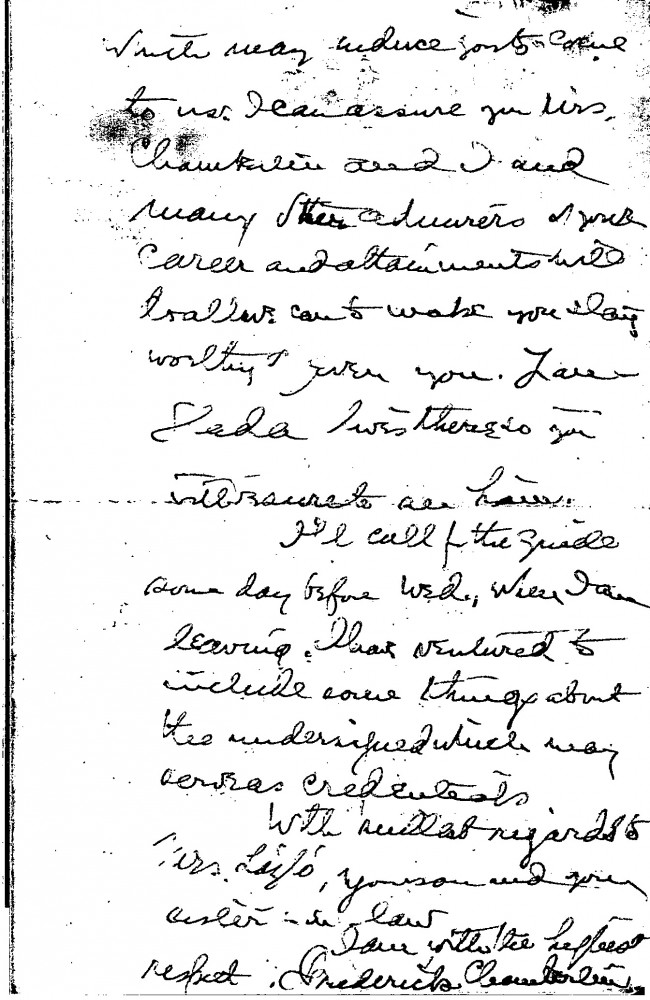 which may induce you to come
to us. I can assure you Mrs.
Chamberlin and I and
many other admirers of your
career and attainments will
do all we can to make you stay
worthy of even you. Zane
I was there so you
will be sure to see him.
I'll call for the guide
some day before Wed., when I am
leaving. I have ventured to
include some things about
the undersigned which may
serve as credentials
With regards to
Mrs. your son and your
sister-in-law
I am with the highest
respect. Frederick Chamberlin